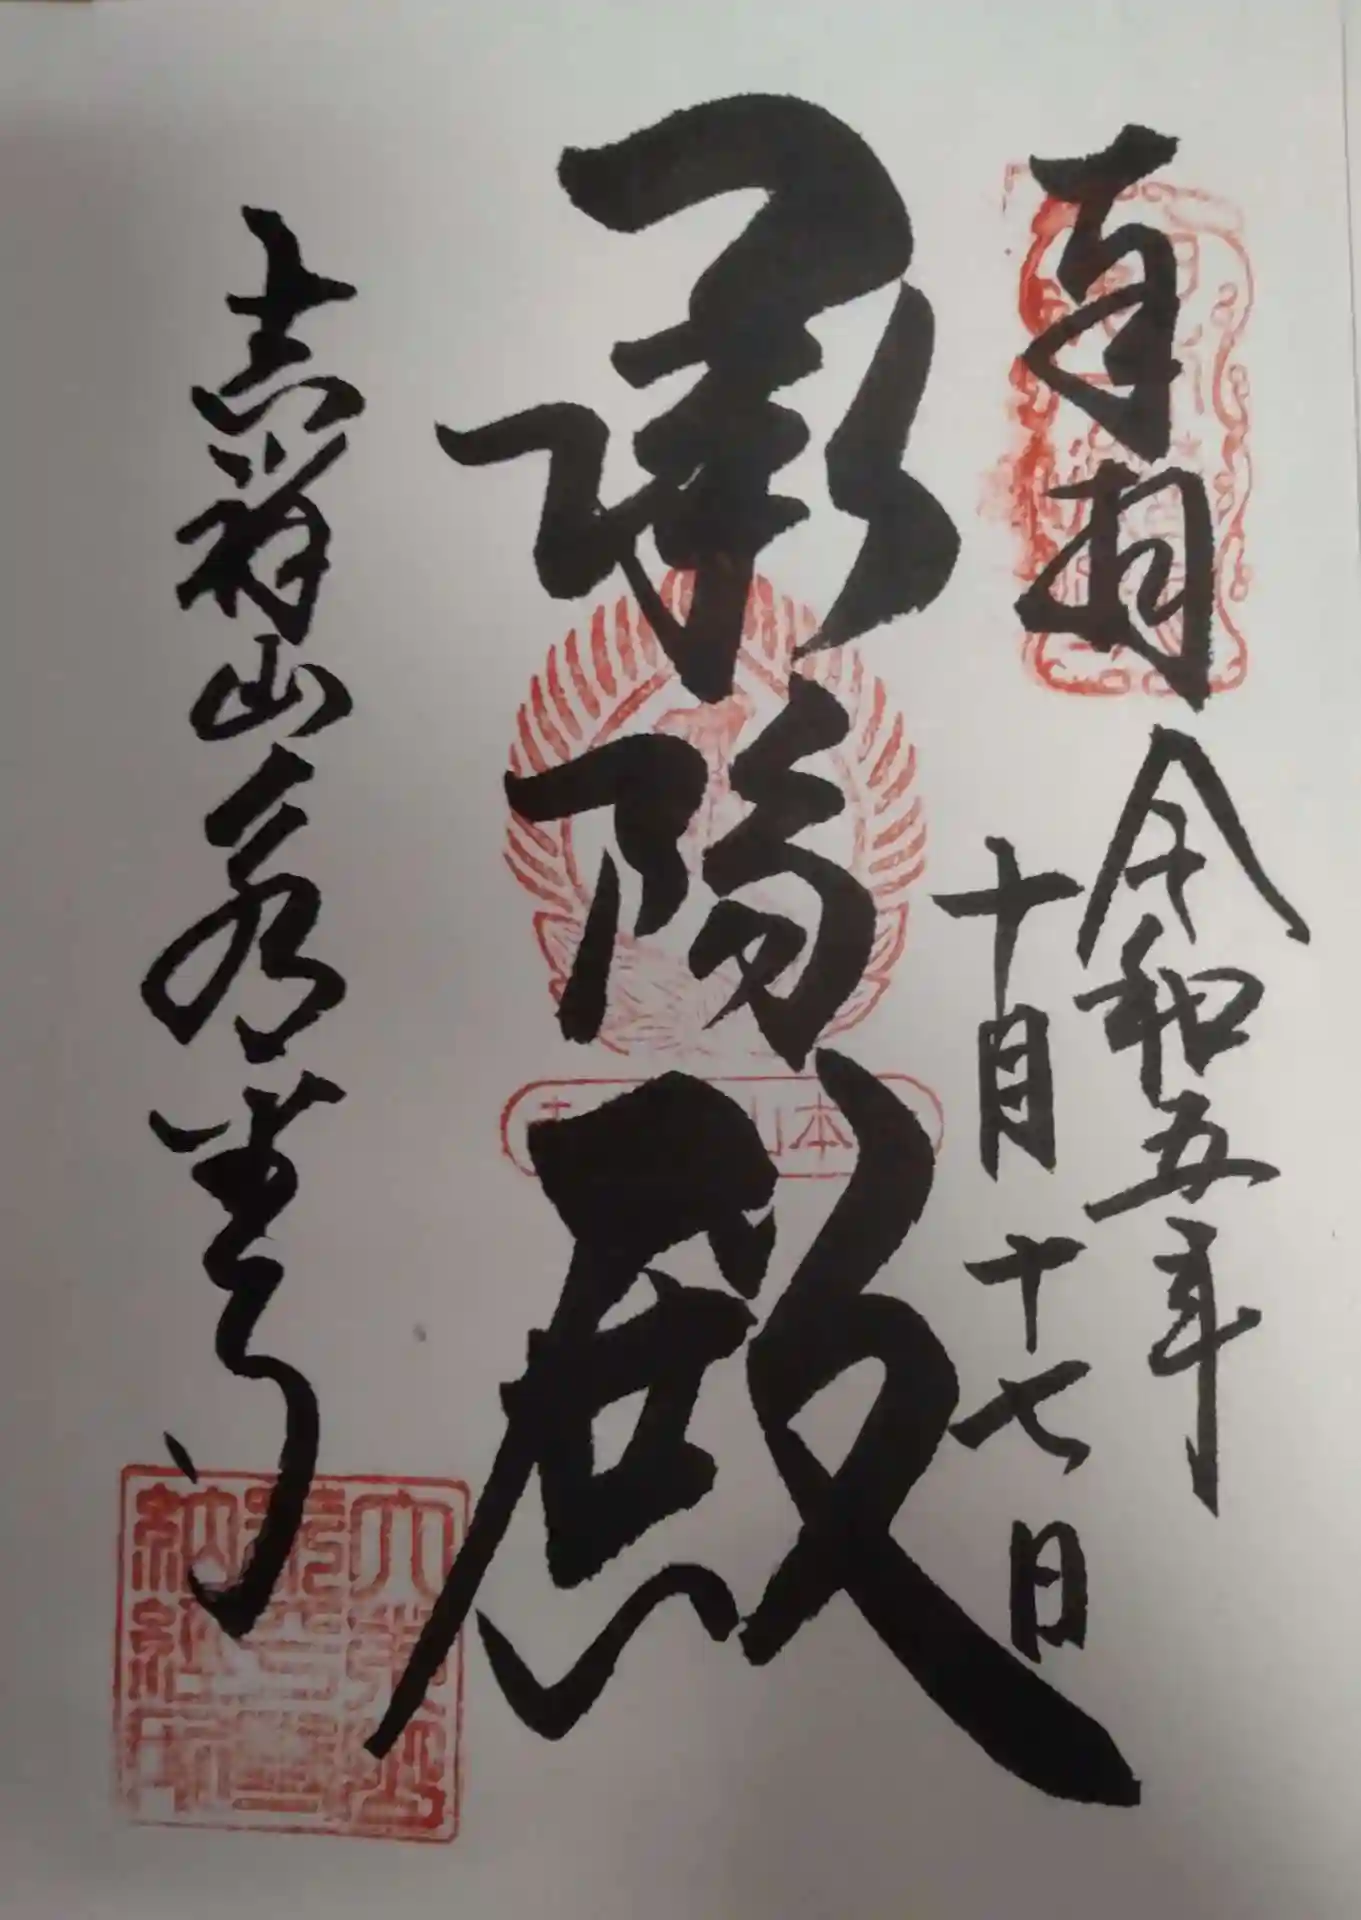 令和五年
十月十七日
承陽殿
吉祥山永平寺